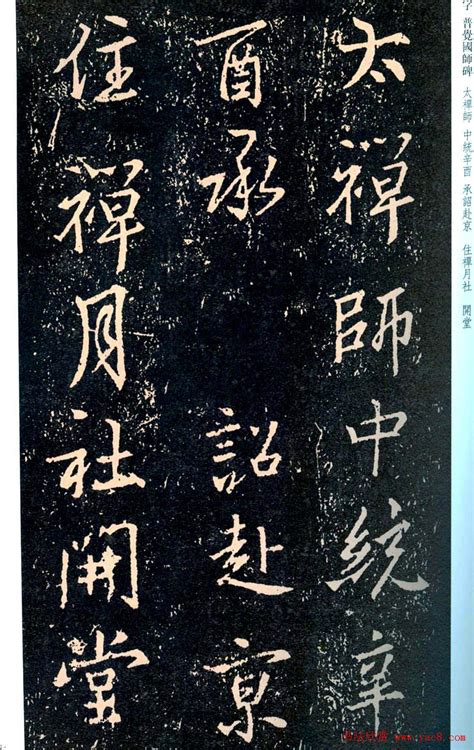 太禪師中統辛
酉承 詔赴京
住禪月社開堂
字 普覺國師碑 太禪師 中統辛酉 承詔赴京 住禪月社 開堂
www.yac8.com